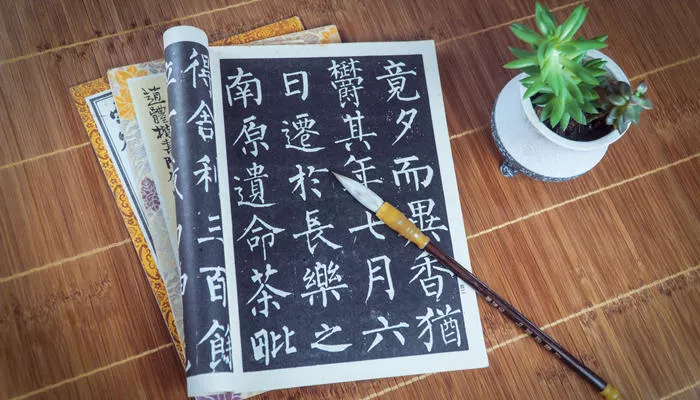 竟夕而異香猶
鬱其年七月六
日遷於長樂之
南原遺命茶毗
得舍利三百餘